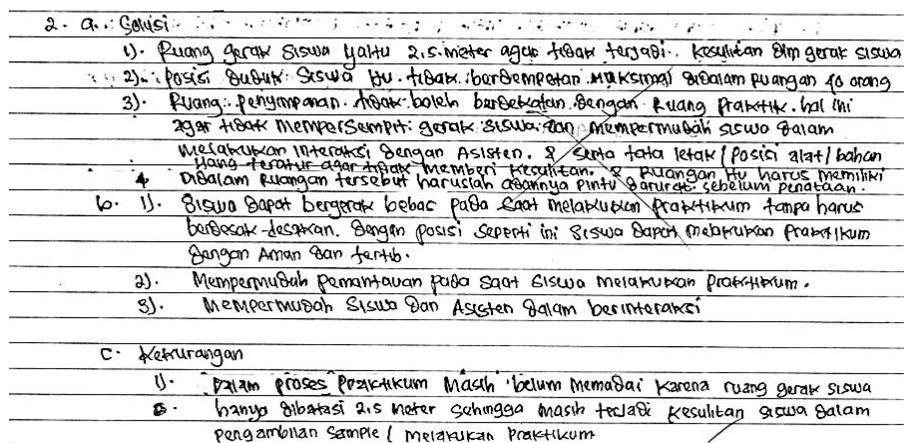 2. a. Solusi
1). Ruang gerak siswa yaitu 2,5 meter agar tidak terjadi kesulitan dlm gerak siswa
2). Posisi duduk siswa itu tidak berdempetan. Maksimal didalam ruangan 40 orang
3). Ruang penyimpanan tidak boleh berdekatan dengan ruang praktik. hal ini
agar tidak mempersempit gerak siswa dan mempermudah siswa dalam
melakukan interaksi dengan Asisten. & serta tata letak (posisi alat/bahan
yang teratur agar tidak memberi kesulitan. & ruangan itu harus memiliki
4 Didalam ruangan tersebut haruslah adannya pintu darurat sebelum penataan.
b. 1). Siswa dapat bergerak bebas pada saat melakukan praktikum tanpa harus
berdesak-desakan. dengan posisi seperti ini siswa dapat melakukan praktikum
dengan Aman dan tertib.
2). Mempermudah pemantauan pada saat siswa melakukan praktikum.
3). Mempermudah siswa dan Asisten dalam berinteraksi
c. Kekurangan
1). Dalam proses praktikum masih belum memadai karena ruang gerak siswa
hanya dibatasi 2,5 meter sehingga masih terjadi kesulitan siswa dalam
pengambilan sample / melakukan praktikum